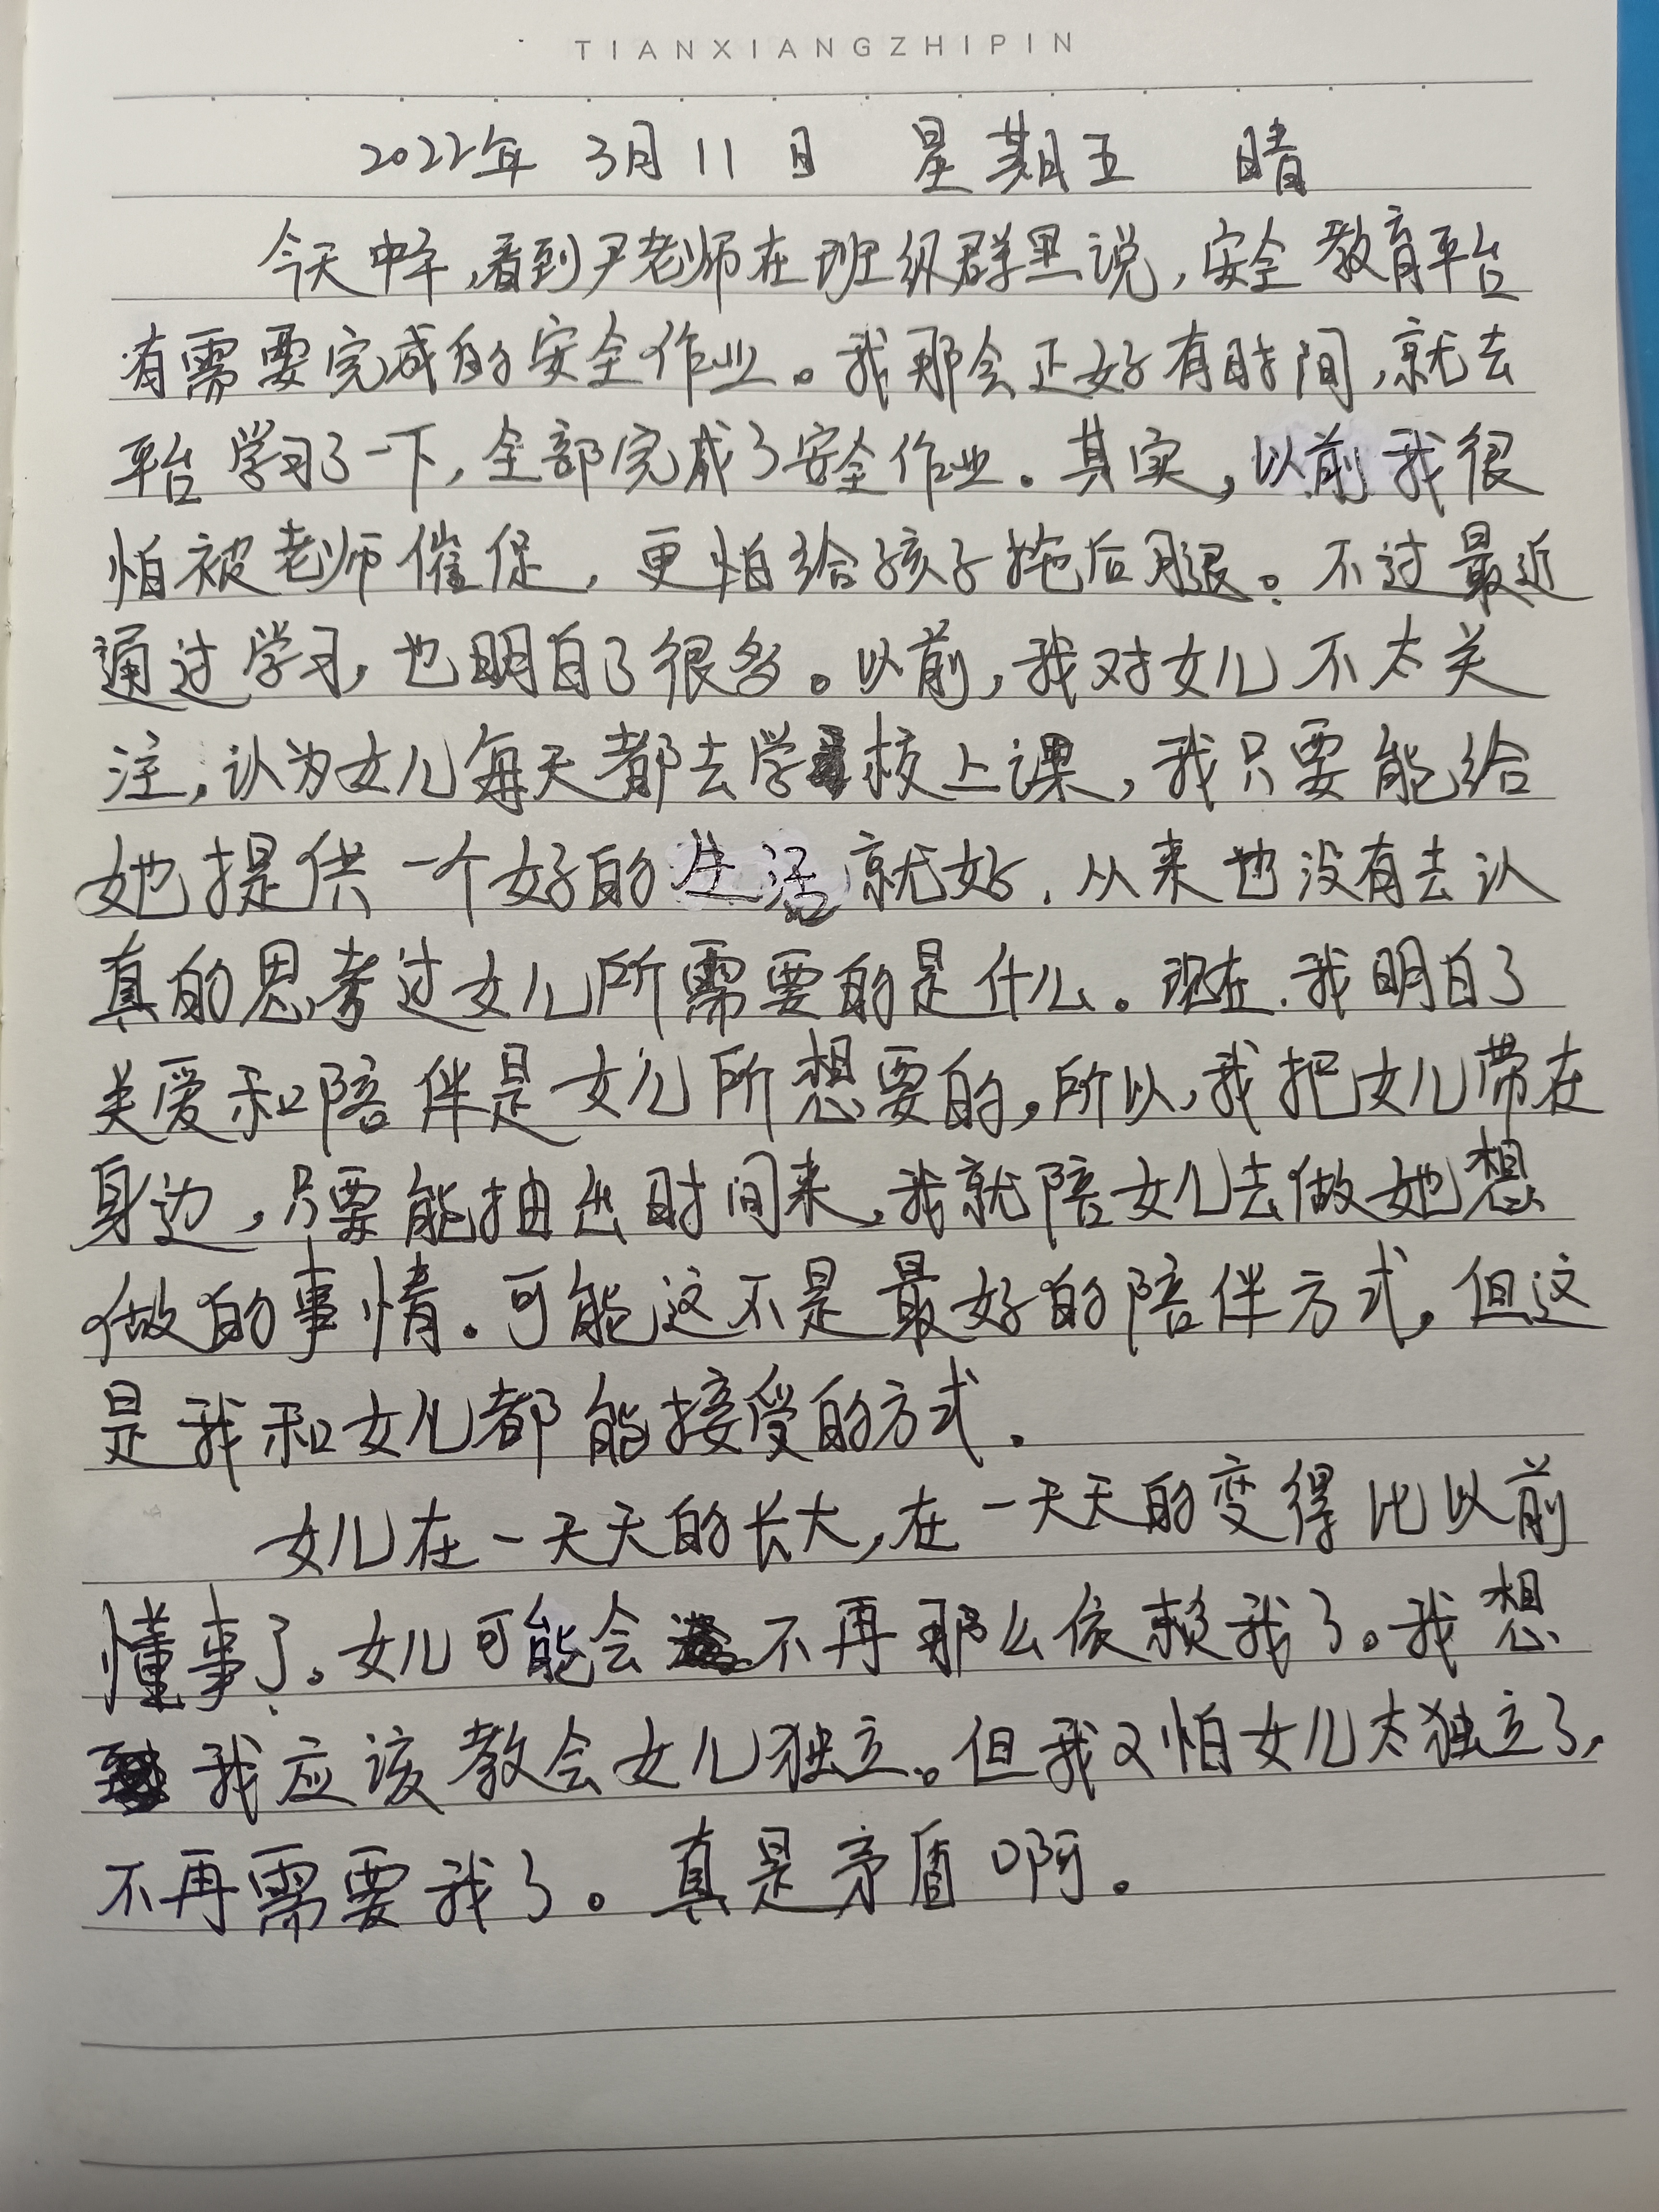 TIANXIANGZHIPIN
2022年 3月11日 星期五 晴
今天中午,看到尹老师在班级群里说,安全教育平台
有需要完成的安全作业。我那会正好有时间,就去
平台学习了一下,全部完成了安全作业。其实,以前我很
怕被老师催促,更怕给孩子拖后腿。不过最近
通过学习,也明白了很多。以前,我对女儿不太关
注,认为女儿每天都去学校上课,我只要能给
她提供一个好的生活就好.从来也没有去认
真的思考过女儿所需要的是什么。现在.我明白了
关爱和陪伴是女儿所想要的,所以,我把女儿带在
身边,只要能抽出时间来,我就陪女儿去做她想
做的事情。可能这不是最好的陪伴方式,但这
是我和女儿都能接受的方式.
女儿在一天天的长大,在一天天的变得比以前
懂事了。女儿可能会不再那么依赖我了。我想
我应该教会女儿独立。但我又怕女儿太独立了,
不再需要我了。真是矛盾啊。